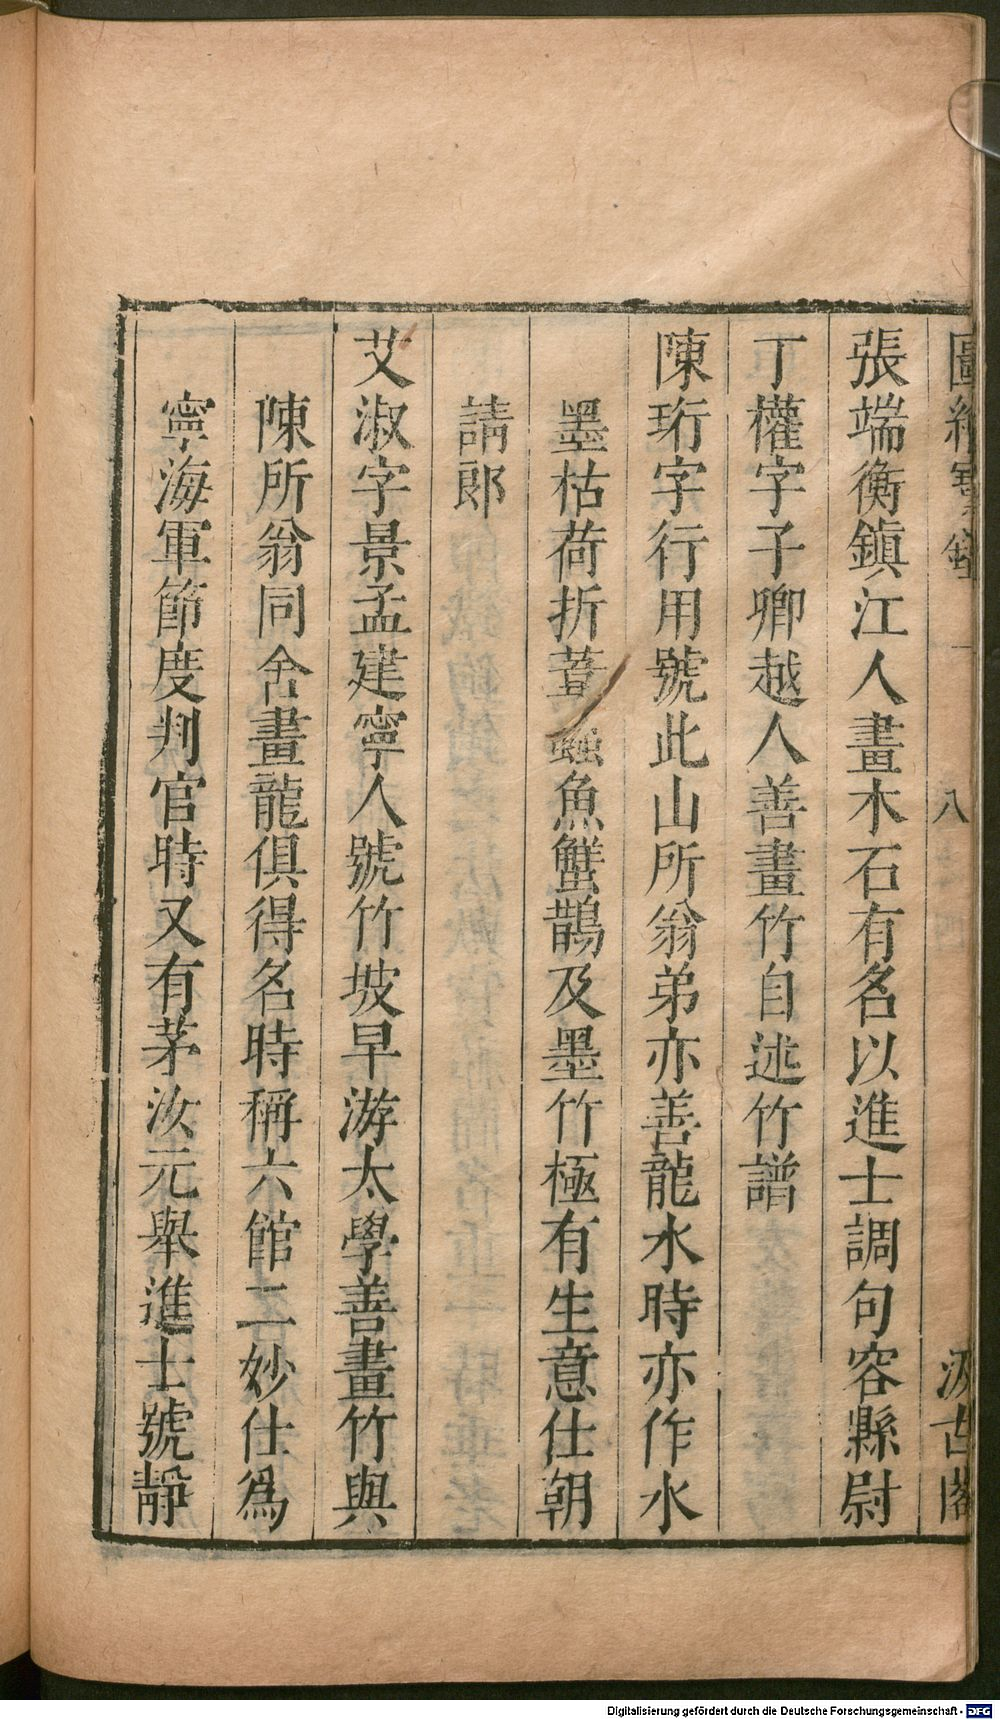 圖繪寶鑑 八 汲古閣
張端衡鎮江人畫木石有名以進士調句容縣尉
丁權字子卿越人善畫竹自述竹譜
陳珩字行用號此山所翁弟亦善龍水時亦作水
墨枯荷折葦蟲魚蟹鵲及墨竹極有生意仕朝
請郎
艾淑字景孟建寧人號竹坡早游太學善畫竹與
陳所翁同舍畫龍俱得名時稱六館二妙仕爲
寧海軍節度判官時又有茅汝元舉進士號靜
Digitalisierung gefördert durch die Deutsche Forschungsgemeinschaft - DFG